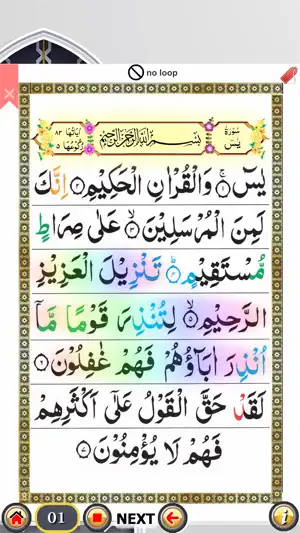 no loop
سُورَة يٰسٓ
بِسْمِ اللّٰهِ الرَّحْمٰنِ الرَّحِيْمِ
اٰيَاتُهَا ٨٣
رُكُوْعُهَا ٥
يٰسٓ ۝١ وَالْقُرْاٰنِ الْحَكِيْمِ ۝٢ اِنَّكَ
لَمِنَ الْمُرْسَلِيْنَ ۝٣ عَلٰى صِرَاطٍ
مُّسْتَقِيْمٍ ۝٤ تَنْزِيْلَ الْعَزِيْزِ
الرَّحِيْمِ ۝٥ لِتُنْذِرَ قَوْمًا مَّاۤ
اُنْذِرَ اٰبَآؤُهُمْ فَهُمْ غٰفِلُوْنَ ۝٦
لَقَدْ حَقَّ الْقَوْلُ عَلٰۤى اَكْثَرِهِمْ
فَهُمْ لَا يُؤْمِنُوْنَ ۝٧
01 NEXT i